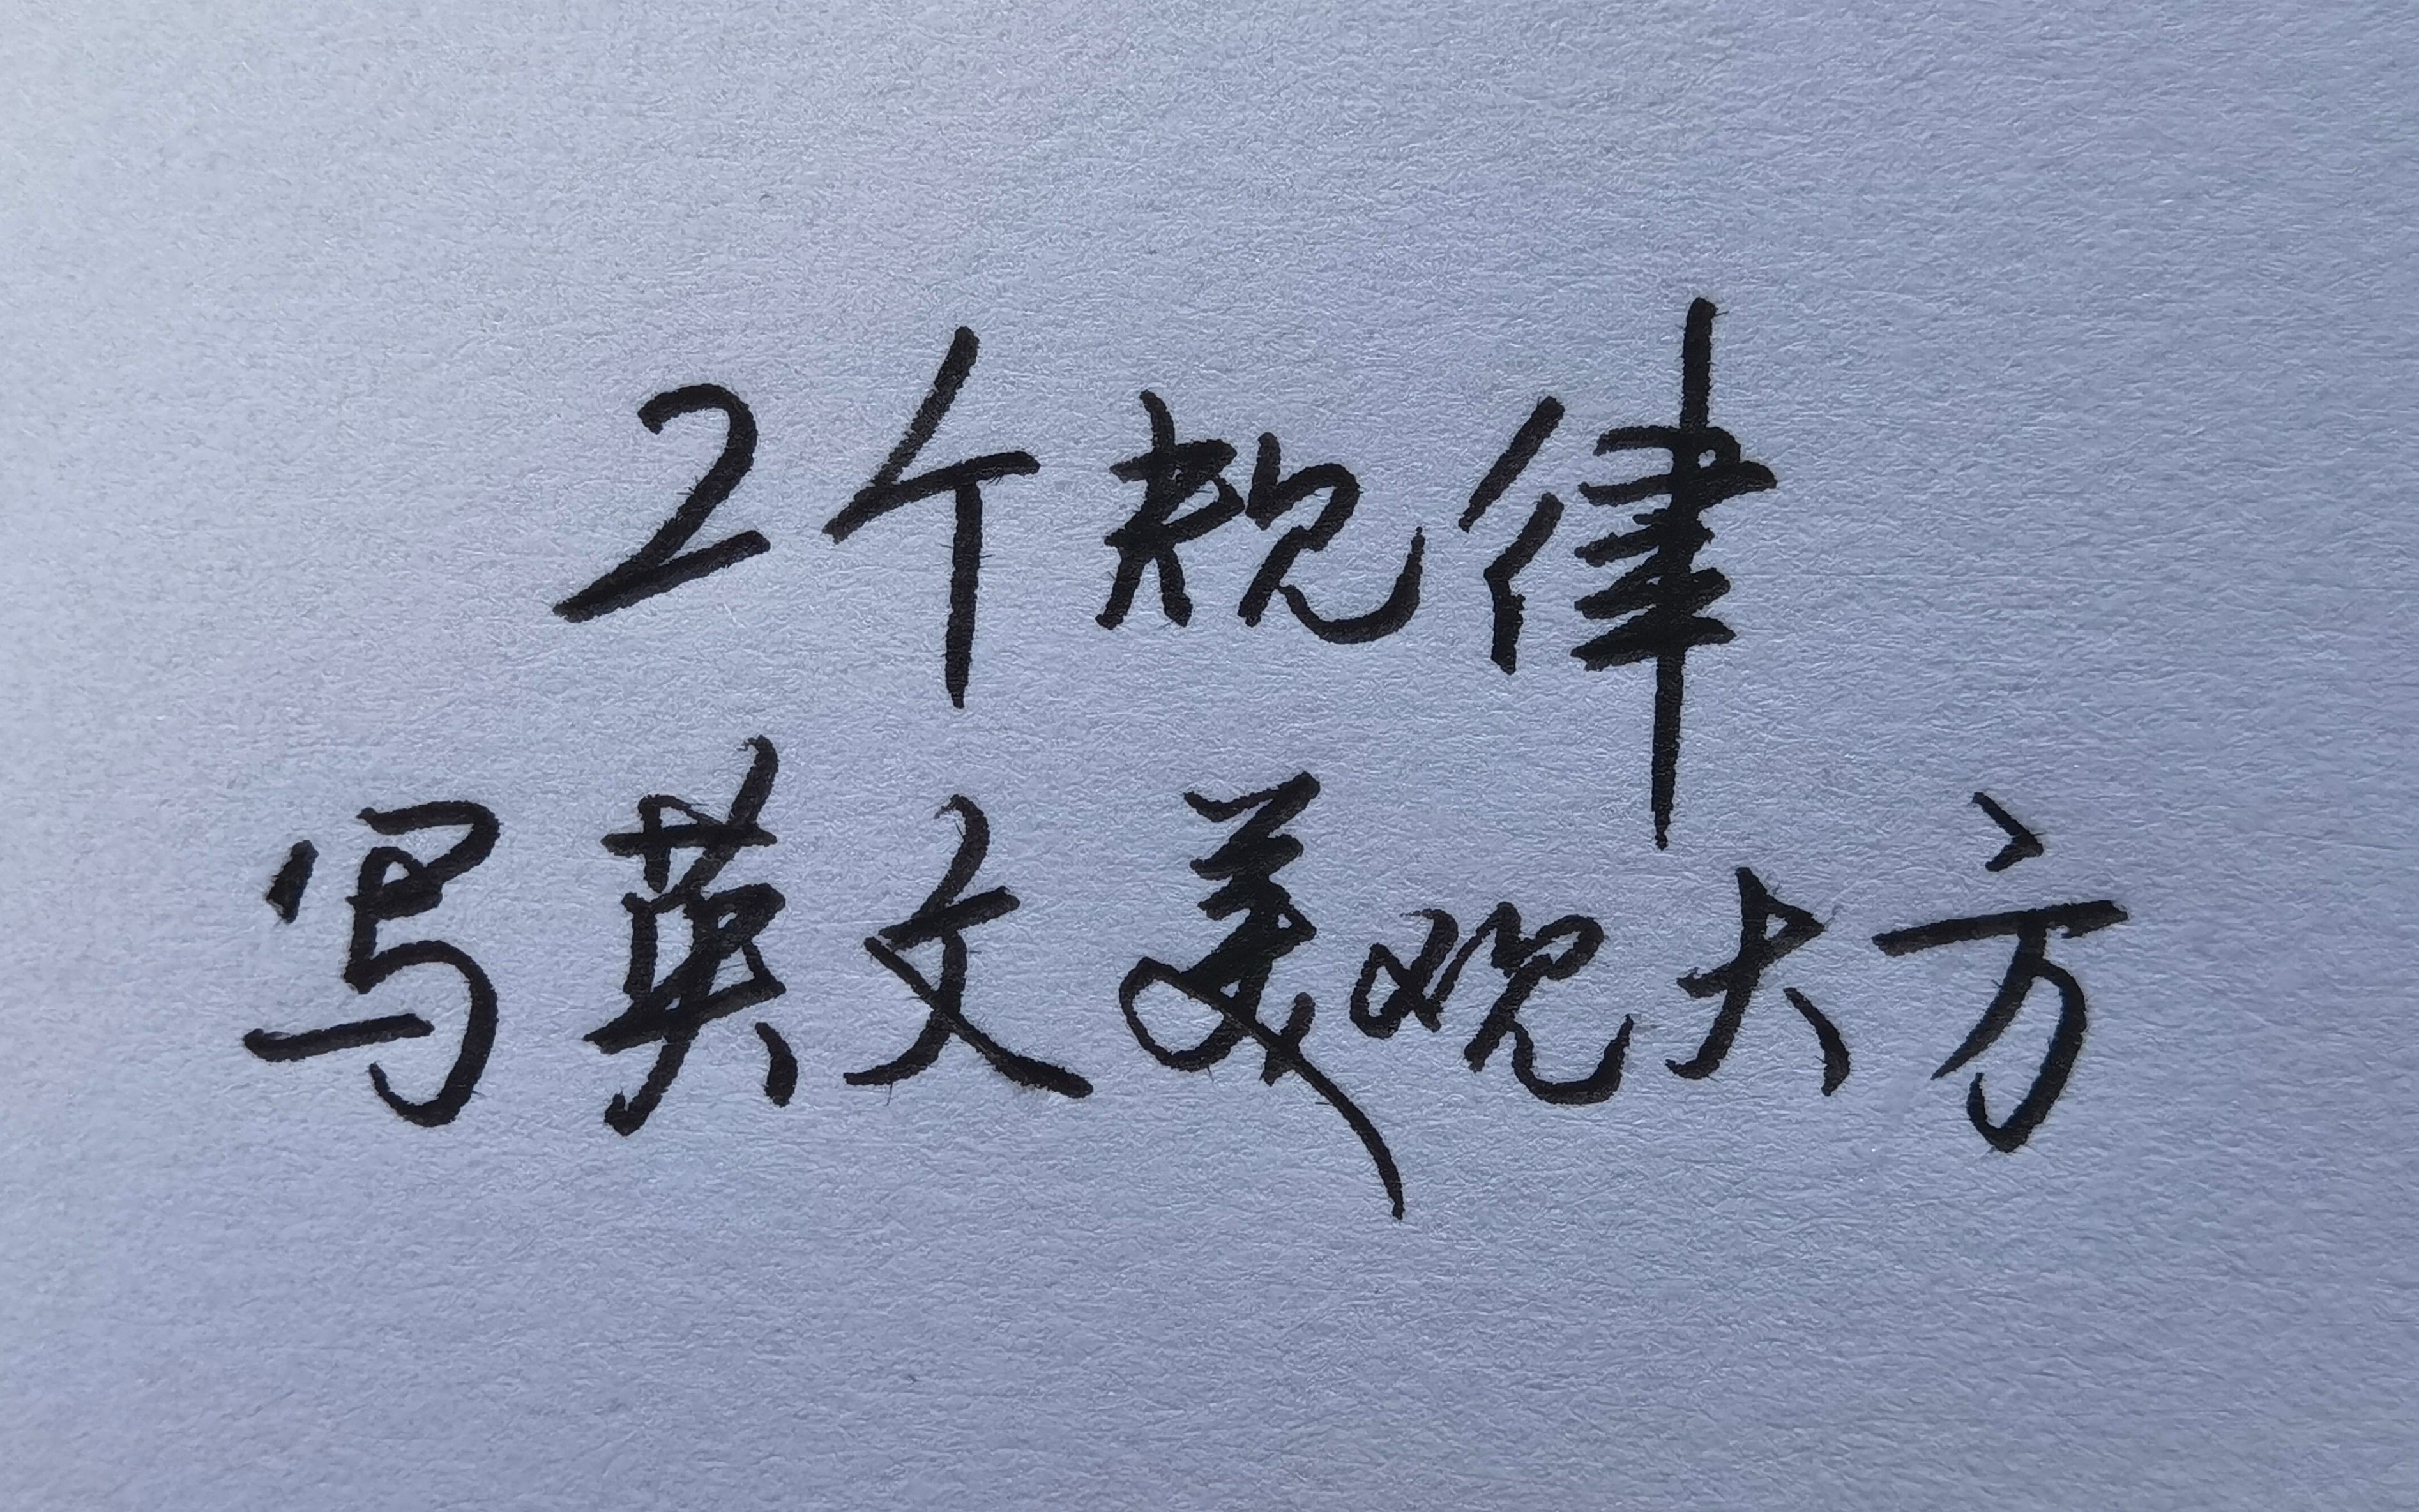 2个规律
写英文美观大方